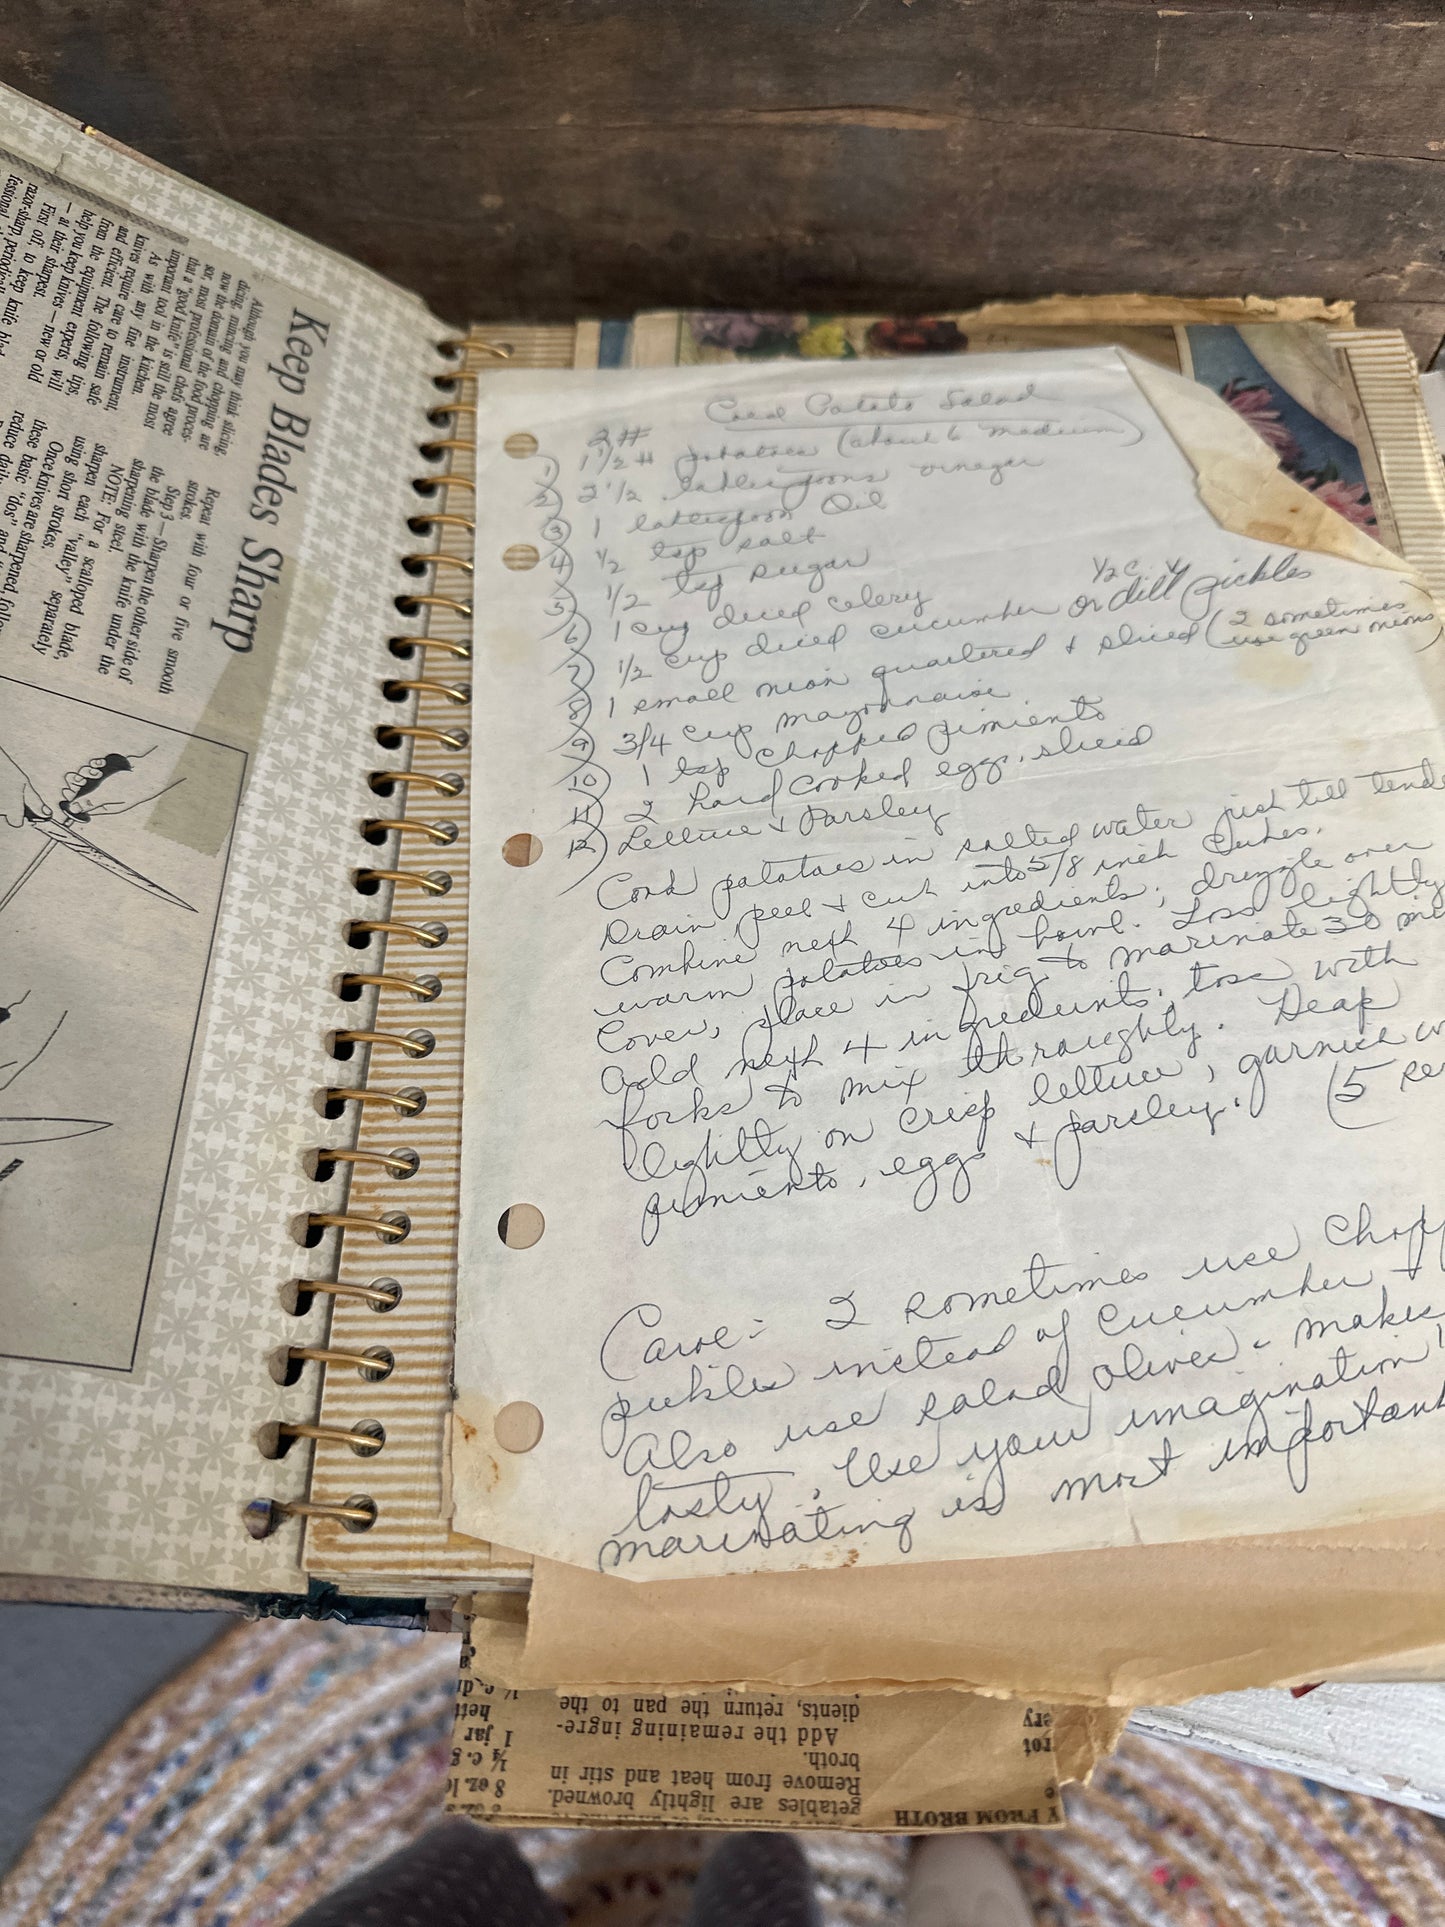 Keep Blades Sharp
Although you may think slicing,
dicing, mincing and chopping are
now the domain of the food proces-
sor, most professional chefs agree
that a "good knife" is still the most
important tool in the kitchen.
As with any fine instrument,
knives require care to remain safe
and efficient. The following tips,
from the equipment experts, will
help you keep knives — new or old
— at their sharpest.
First off, to keep knife
razor-sharp, periodically
fessional
Repeat with four or five smooth
strokes.
Step 3 — Sharpen the other side of
the blade with the knife under the
sharpening steel.
NOTE: For a scalloped blade,
sharpen each "valley" separately
using short strokes.
Once knives are sharpened, follow
these basic "dos" and
reduce
Cold Potato Salad
2#
1) 1 1/2 # potatoes (about 6 medium)
2) 2 1/2 tablespoons vinegar
3) 1 tablespoon Oil
4) 1/2 tsp salt
5) 1/2 tsp sugar
6) 1 cup diced celery
1/2 c.
7) 1/2 cup diced cucumber or dill pickles
8) 1 small onion quartered & sliced (I sometimes
use green onions)
9) 3/4 cup mayonnaise
10) 1 tsp chopped pimiento
11) 2 hard cooked eggs, sliced
12) Lettuce & Parsley
Cook potatoes in salted water just till tend
Drain peel & cut into 5/8 inch cubes.
Combine next 4 ingredients; drizzle over
warm potatoes in bowl. Toss lightly
Cover, place in frig to marinate 30 mi
Add next 4 ingredients, toss with
forks to mix thoroughly. Heap
lightly on crisp lettuce, garnish w
pimiento, eggs & parsley. (5 se
Carol: I sometimes use chopp
pickles instead of cucumber &
Also use salad olives - makes
tasty. Use your imagination!
marinating is most important
Y FROM BROTH
getables are lightly browned.
Remove from heat and stir in
broth.
Add the remaining ingre-
dients, return the pan to the
8 oz.
1/4 c.
1 jar